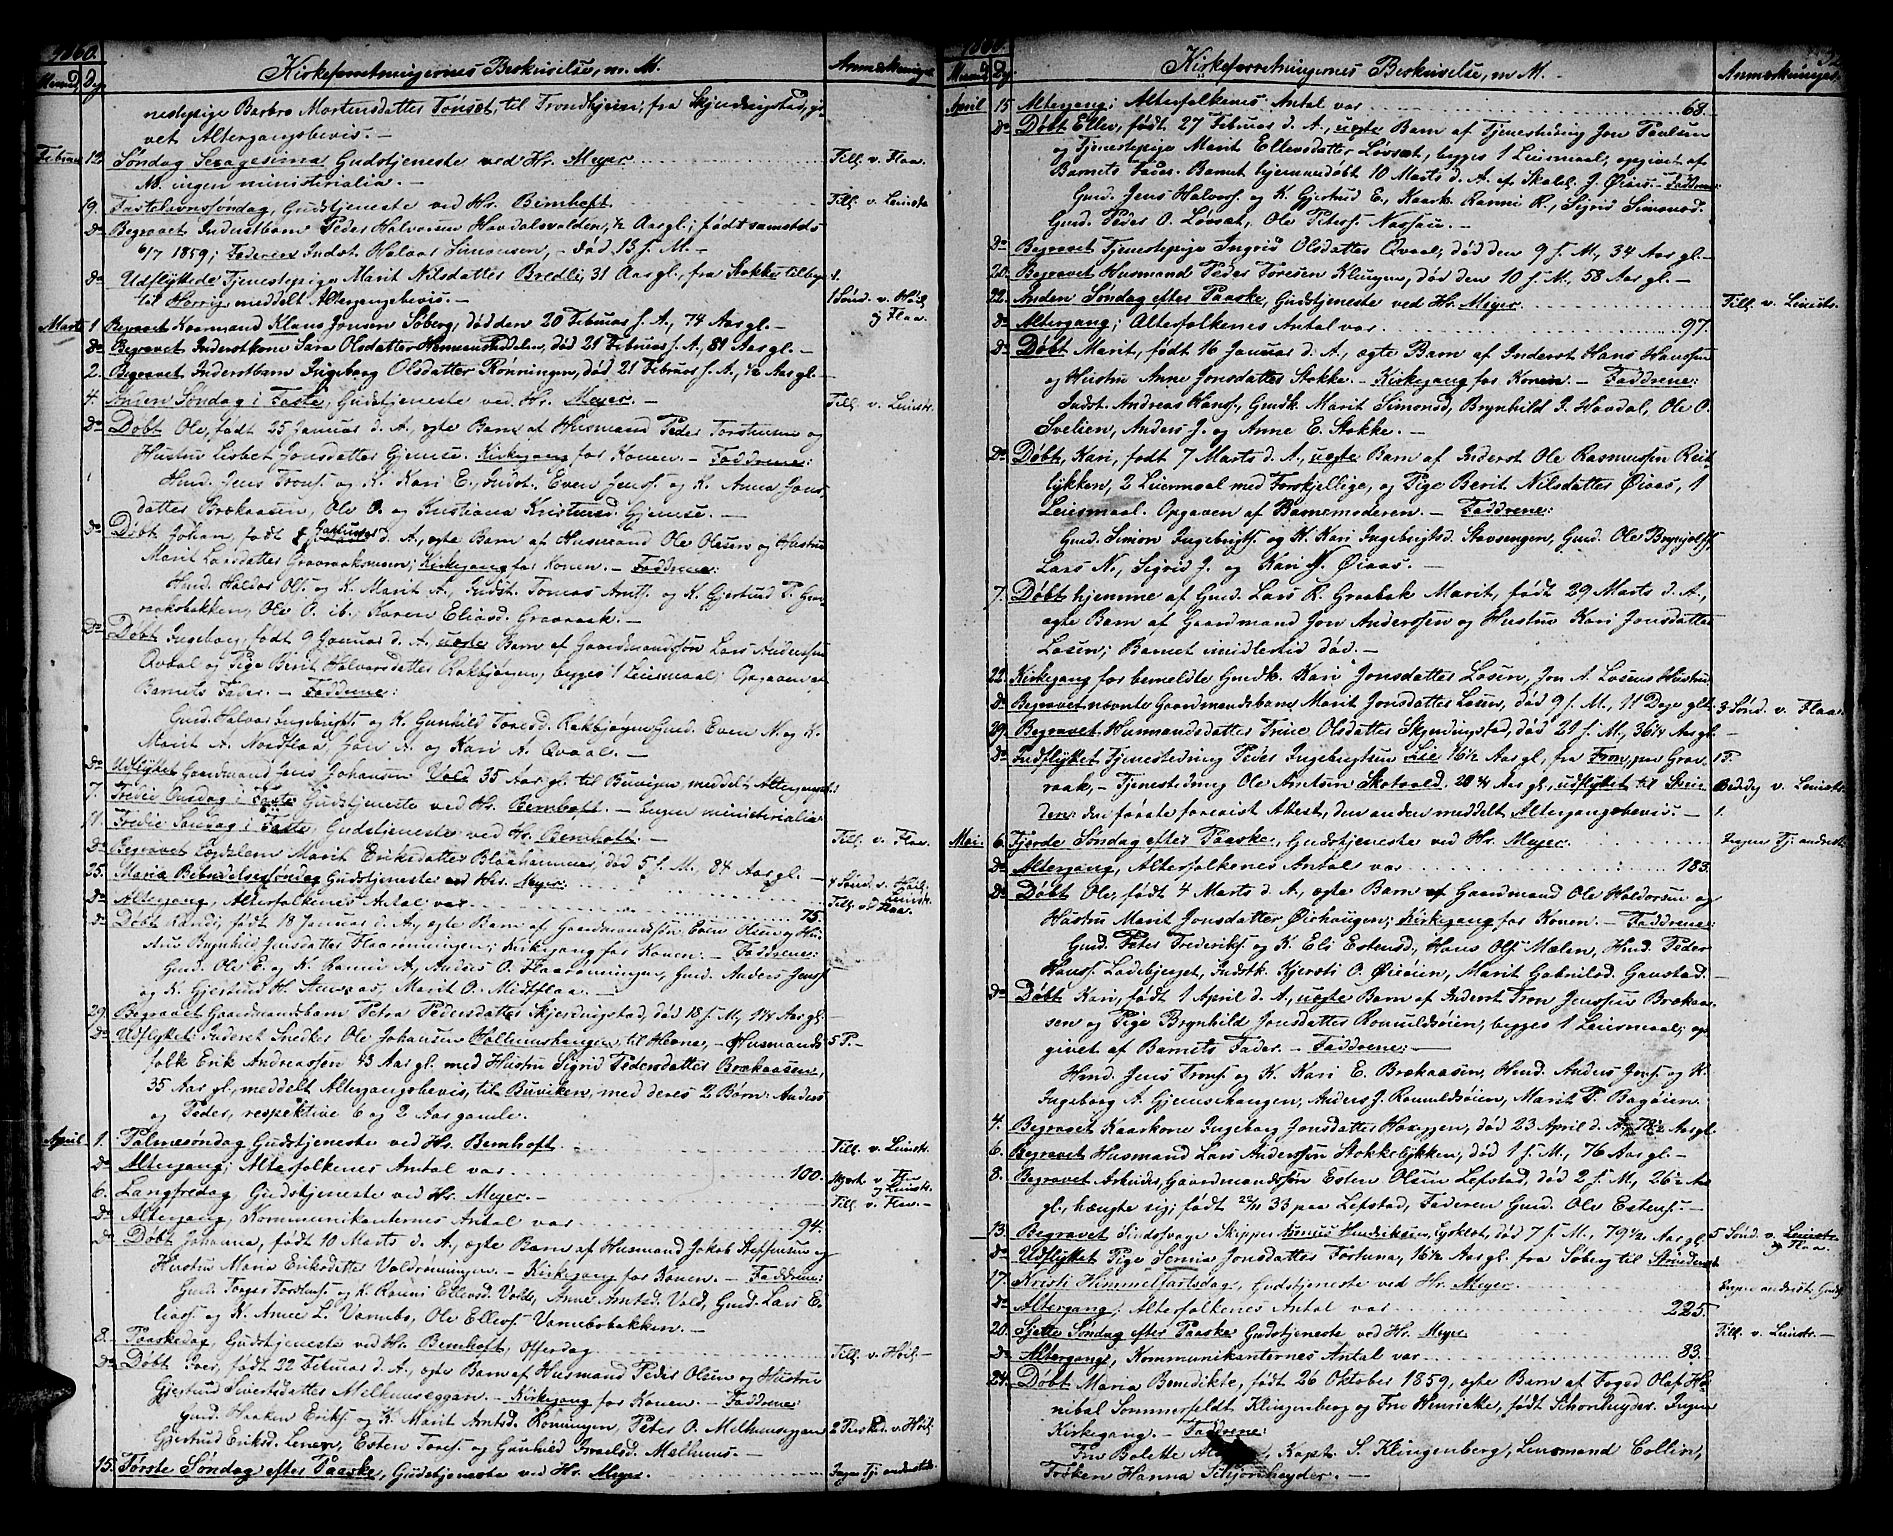 1860.
Maaned Dag Kirkeforretningernes Beskrivelse, m. M. Anmærkninger
nestepige Barbro Mortensdatter Tønset, til Trondhjem, fra Skjerdingstad,
vet Altergangsbevis. —
Februar 12. Søndag Sexagesima Gudstjeneste ved Hr. Meyer. Till. v. Flaa.
M. ingen ministerialia. —
19. Fastelavnssøndag, Gudstjeneste ved Hr. Bernhoft. Till. v. Leinstr.
Do Begravet Inderstbarn Peder Halvorsen Havdalsvolden, ½ Aar gl; født samsteds
6/7 1859; Faderen Inderst Halvor Simonsen, død 13 f. M. —
Do Udflyttede Tjenestepige Marit Nilsdatter Bredli, 31 Aar gl. fra Stokke
til Horrig, meddelt Altergangsbevis. — 1 Sønd. v. Höil. og Flaa.
Marts 1. Begravet Kaarmand Klaus Jonsen Søberg, død den 20 Februar f. A., 74 Aar gl. —
Do Begravet Inderstkone Sara Olsdatter, død 21 Februar f. A., 81 Aar gl. —
2. Begravet Inderstbarn Ingeborg Olsdatter Rønningen, død 21 Februar f. A., ½ Aar gl. —
4. Anden Søndag i Faste, Gudstjeneste ved Hr. Meyer. — Till. v. Leinstr.
Do Døbt Ole, født 25 Januar d. A., ægte Barn af Husmand Peder Torstensen og
Hustru Lisbet Jonsdatter Gjemse. Kirkegang for Konen. — Faddrene:
Husd. Jens Trons. og K. Kari E., Indst. Even Jens. og K. Anna Jons-
datter Brækaasen, Ole O. og Kristiana Kristensd. Gjemse. —
Do Døbt Johan, født Januar d. A., ægte Barn af Husmand Ole Olsen og Hustru
Marit Larsdatter Gravraaksmoen; Kirkegang for Konen. — Faddrene:
Husd. Haldor Ols. og K. Marit A., Indst. Tomas Arnts. og K. Gjertrud P. Grav-
raaksbakken, Ole O. ib., Karen Eliasd. Gravraak. —
Do Døbt Ingeborg, født 9 Januar d. A., uægte Barn af Gaardmandssøn Lars Anderssen
Qvaal og Pige Berit Halvorsdatter Rakbjørgen, begges 1 Leiermaal; Opgaven af
Barnets Fader. — Faddrene:
Gmd. Halvor Ingebrigts. og K. Gunhild Toresd. Rakbjørgen, Gmd. Even N. og K.
Marit A. Nordflaa, Jon A. og Kari A. Qvaal. —
Do Udflyttet Gaardmand Jens Johansen Vold 35 Aar gl. til Buviken, meddelt Altergangsb.
7. Tredie Onsdag i Faste Gudstjeneste ved Hr. Bernhoft. — Ingen ministerialia
11. Tredie Søndag i Faste, Gudstjeneste ved Hr. Bernhoft. — Till. v. Flaa.
Do Begravet Lægdslem Marit Eriksdatter Blaahammer, død 5 f. M., 84 Aar gl. —
25. Maria Bebudelsessøndag Gudstjeneste ved Hr. Meyer. 4 Sønd. v. Höil. Leinstr.
Do Altergang, Alterfolkenes Antal var 75. Till. v. Flaa.
Do Døbt Randi, født 18 Januar d. A., ægte Barn af Gaardmandssøn Even Olsen og Hu-
stru Brynhild Jensdatter Flaarønningen; Kirkegang for Konen. — Faddrene:
Gmd. Ole E. og K. Ranni A., Anders O. Flaarønningen, Gmd. Anders Jens.
og K. Gjertrud H. Stensaas, Marit O. Midtflaa. —
29. Begravet Gaardmandsbarn Petra Pedersdatter Skjerdingstad, død 18 f. M., 1¼ Aar gl. —
Do Udflyttet: Inderst Snedker Ole Johansen Hollumshaugen, til Hevne, — Husmands- 5 P. —
folk Erik Andreassen 43 Aar gl. med Hustru Sigrid Pedersdatter Brækaasen,
35 Aar gl., meddelt Altergangsbevis, til Buviken, med deres 2 Børn: Anders
og Peder, respektive 6 og 2 Aar gamle.
April 1. Palmesøndag Gudstjeneste ved Hr. Bernhoft. Till. v. Leinstr.
Do Altergang; Alterfolkenes Antal var 100.
6. Langfredag, Gudstjeneste ved Hr. Meyer. — Till. v. Flaa. —
Do Altergang, Kommunikanternes Antal var 94.
Do Døbt Johanna, født 10 Marts d. A., ægte Barn af Husmand Jakob Steffensen og
Hustru Maria Eriksdatter Voldrønningen. — Kirkegang for Konen. — Faddrene:
Gmd. Torger Torstens. og K. Ranni Ellevsd. Vold, Anne Arntsd. Vold, Gmd. Lars E-
lias. og K. Anne L. Varmbo, Ole Ellevs. Varmbobakken. —
8. Paaskedag, Gudstjeneste ved Hr. Bernhoft, Offerdag Till. v. Höil. —
Do Døbt Iver, født 22 Februar d. A., ægte Barn af Husmand Peder Olsen og Hustru
Gjertrud Sivertsdatter Melhuseggan. — Kirkegang for Konen. — Faddrene:
Gmd. Haaken Eriks. og K. Marit Arntsd. Rønningen, Peter O. Melhuseggan
Gjertrud Eriksd. Lenen, Esten Tores. og Gunhild Israelsd. Melhuus. — 2 Paaskd. v. Höil.
15. Første Søndag efter Paaske, Gudstjeneste ved Hr. Meyer. Ingen Tj. andensteds
1860.
Maaned Dag Kirkeforretningernes Beskrivelse, m. M. Anmærkninger
April 15. Altergang; Alterfolkenes Antal var 68.
Do Døbt Ellev, født 27 Februar d. A., uægte Barn af Tjenestedreng Jon Paulsen
og Tjenestepige Marit Ellevsdatter Løvset, begges 1 Leiermaal; opgivet af
Barnets Fader. Barnet hjemmedøbt 10 Marts d. A. af Skolel. J. Øiaas. — Faddrene:
Gmd. Jens Halvors. og K. Gjertrud E., Kaark. Ranni R., Sigrid Simonsd.
Gmd. Peder O. Løvset, Ole Peters. Næssan. —
Do Begravet Tjenestepige Ingrid Olsdatter Qvaal, død den 9 f. M., 34 Aar gl. —
20. Begravet Husmand Peder Toresen Klungen, død den 10 f. M., 58 Aar gl. —
22. Anden Søndag efter Paaske, Gudstjeneste ved Hr. Meyer. Till. v. Leinstr.
Do Altergang; Alterfolkenes Antal var 97.
Do Døbt Marit, født 16 Januar d. A., ægte Barn af Inderst Hans Hanssen
og Hustru Anne Jonsdatter Stokke. — Kirkegang for Konen. — Faddrene:
Indst. Andreas Hans., Gmdk. Marit Simonsd., Brynhild J. Havdal, Ole O.
Svelsen, Anders J. og Anne E. Stokke. —
Do Døbt, Kari, født 7 Marts d. A., uægte Barn af Inderst Ole Rasmussen Reit-
lykken, 2 Leiermaal med Forskjellige, og Pige Berit Nilsdatter Øiaas, 1
Leiermaal. Opgaven af Barnemoderen. — Faddrene:
Gmd. Simon Ingebrigts. og K. Kari Ingebrigtsd. Stavsengen, Gmd. Ole Brynjolfs.
Lars N., Sigrid J. og Kari N. Øiaas. —
7. Døbt hjemme af Gmd. Lars R. Graabak Marit, født 29 Marts d. A.,
ægte Barn af Gaardmand Jon Anderssen og Hustru Kari Jonsdatter
Losen; Barnet imidlertid død. —
22. Kirkegang for bemeldte Gmdk. Kari Jonsdatter Losen, Jon A. Losens Hustru
Do Begravet nævnte Gaardmandsbarn Marit Jonsdatter Losen, død 9 f. M., 11 Dage gl. 3 Sønd. v. Flaa.
29. Begravet Husmandsdatter Trine Olsdatter Skjerdingstad, død 21 f. M., 36¼ Aar gl.
Do Indflyttet Tjenestedreng Peder Ingebrigtsen Lie 16½ Aar gl., fra Fron, paa Grav- 15.
raak, — Tjenestedreng Ole Arntsen Skotvold, 20¾ Aar gl., udflyttet til Skien- Bededag v. Leinstr.
den: den første forevist Attest, den anden meddelt Altergangsbevis. — 1.
Mai. 6. Fjerde Søndag efter Paaske, Gudstjeneste ved Hr. Meyer. Ingen Tj. andenst.
Do Altergang, Alterfolkenes Antal var 183.
Do Døbt Ole, født 4 Marts d. A., ægte Barn af Gaardmand Ole Haldorsen og
Hustru Marit Jonsdatter Øiehaugen; Kirkegang for Konen. — Faddrene:
Gmd. Peter Frederiks. og K. Eli Estensd., Hans Ols. Mælen, Husd. Peder
Hans. Ladebjerget, Indstk. Kjersti O. Øieøien, Marit Gabrielsd. Gaustad. —
Do Døbt Kari, født 1 April d. A., uægte Barn af Inderst Tron Jenssen Brækaa-
sen og Pige Brynhild Jonsdatter Romuldsøien; begges 1 Leiermaal; op-
givet af Barnets Fader. — Faddrene: —
Husd. Jens Trons. og K. Kari E. Brækaasen, Husd. Anders Jens. og K.
Ingeborg A. Gjemsehaugen, Anders J. Romuldsøien, Marit P. Bagøien.
4. Begravet Kaarkone Ingeborg Jonsdatter Hoxeggen, død 23 April d. A., 78½ Aar gl.
6. Begravet Husmand Lars Anderssen Stokkelykken, død 1 f. M., 76 Aar gl. —
8. Begravet Arbeider, Gaardmandssøn Esten Olsen Lefstad, død 2 f. M., 26½ Aar
gl., hængte sig; født 22/11 33 paa Lefstad, Faderen Gmd. Ole Estens. —
13. Begravet Sindssvage Skipper Hendriksen, død 7 f. M., 79½ Aar gl. 5 Sønd. v. Leinstr. og Flaa.
Do Udflyttet Pige Jonsdatter Fortuna, 16½ Aar gl. fra Søberg til Strinden
17. Kristi Himmelfartsdag, Gudstjeneste ved Hr. Meyer. Ingen andenst. Gudst.
Do Altergang; Alterfolkenes Antal var 225.
20. Sjette Søndag efter Paaske Gudstjeneste ved Hr. Meyer Till. v. Leinstr. —
Do Altergang, Kommunikanternes Antal var 83.
24. Døbt Maria Benedikte, født 26 Oktober 1859, ægte Barn af Foged Olaf Ha-
nibal Sommerfeldt Klingenberg og Fru Henrieke, født Schønheyder. Ingen
Kirkegang. — Faddrene:
Fru Bolette, Kapt. S. Klingenberg, Lensmand Collin,
Frøken Hanna Schjønheyder. —